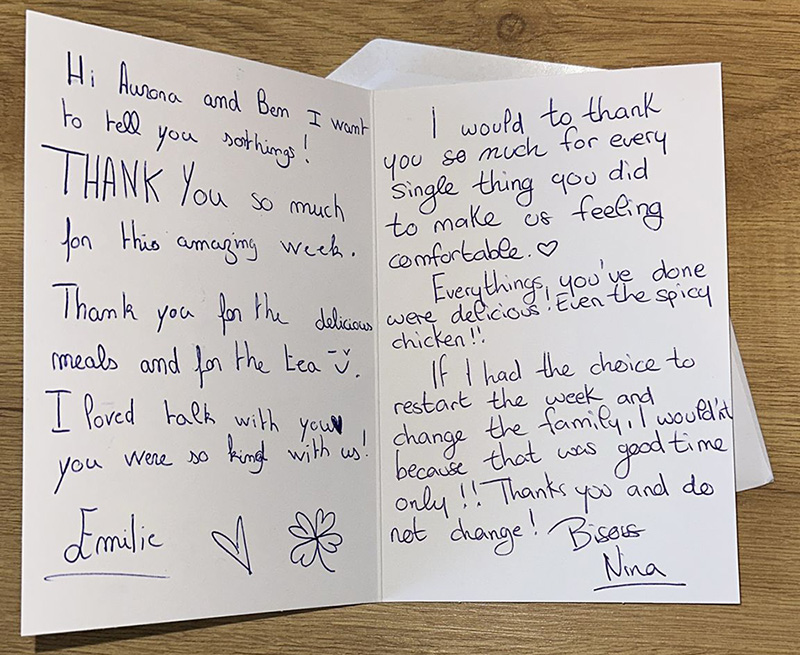 Hi Aurora and Ben I want
to tell you sothings!
THANK You so much
for this amazing week.
Thank you for the delicious
meals and for the tea
I loved talk with you
you were so kind with us!
Emilie
I would to thank
you so much for every
single thing you did
to make us feeling
comfortable. ♡
Everythings, you've done
were delicious! Even the spicy
chicken!!
If I had the choice to
restart the week and
change the family, I wouldn't
because that was good time
only!! Thanks you and do
not change! Bisous
Nina